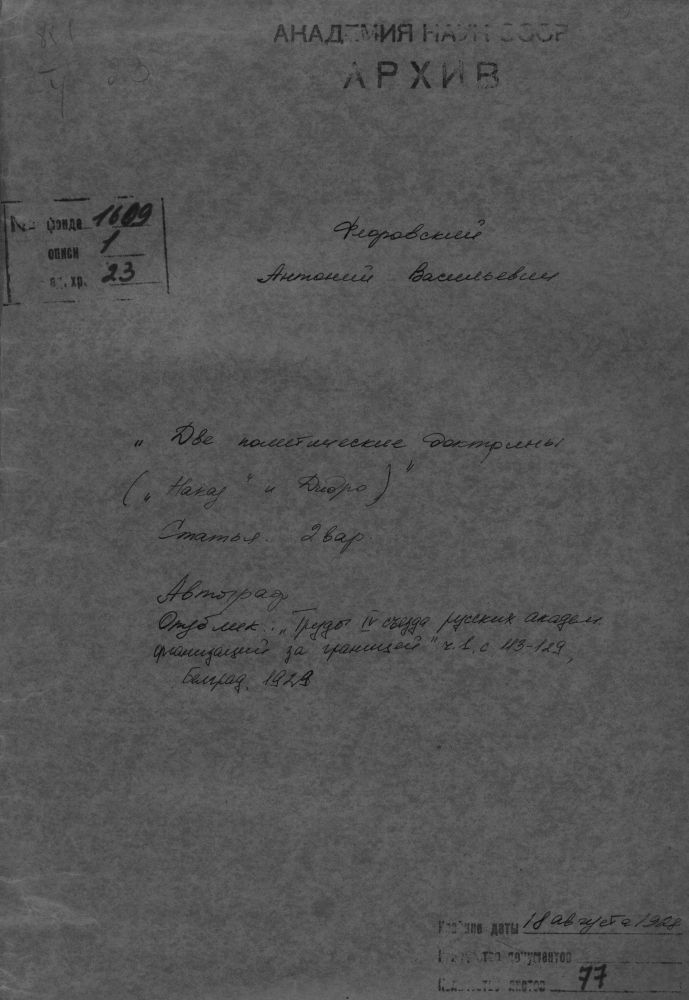 АКАДЕМИЯ НАУК СССР
АРХИВ
23
№ фонда 1609
описи 1
ед. хр. 23
Флоровский
Антоний Васильевич
„ Две политические доктрины
(„Наказ“ и Дидро)“
Статья. 2 вар.
Автограф
Опублик.: „Труды IV съезда русских академ.
организаций за границей“ ч. 1, с 113-129,
Белград, 1929
Крайние даты 18 августа 1928
Количество документов
Количество листов 77